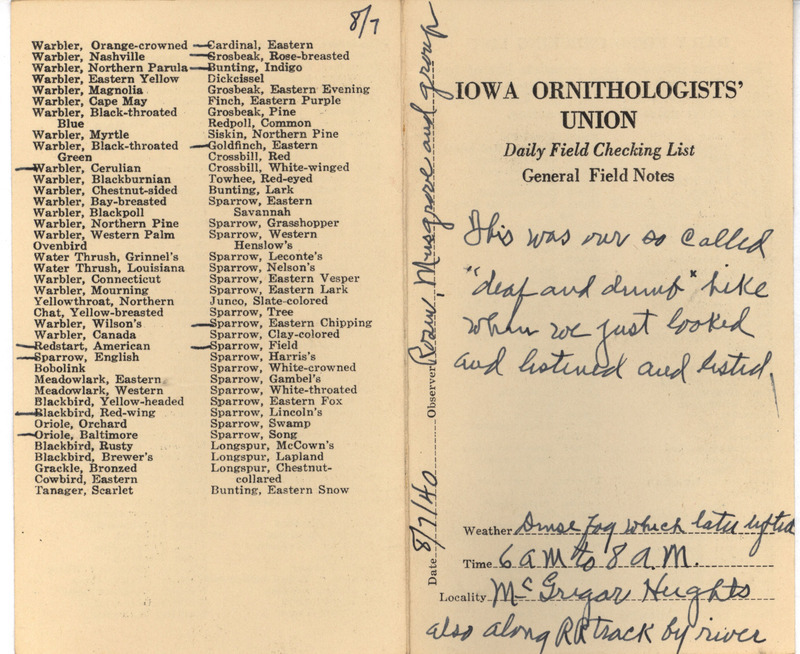 8/7
Warbler, Orange-crowned
Warbler, Nashville
Warbler, Northern Parula
Warbler, Eastern Yellow
Warbler, Magnolia
Warbler, Cape May
Warbler, Black-throated
Blue
Warbler, Myrtle
Warbler, Black-throated
Green
Warbler, Cerulian
Warbler, Blackburnian
Warbler, Chestnut-sided
Warbler, Bay-breasted
Warbler, Blackpoll
Warbler, Northern Pine
Warbler, Western Palm
Ovenbird
Water Thrush, Grinnel's
Water Thrush, Louisiana
Warbler, Connecticut
Warbler, Mourning
Yellowthroat, Northern
Chat, Yellow-breasted
Warbler, Wilson's
Warbler, Canada
Redstart, American
Sparrow, English
Bobolink
Meadowlark, Eastern
Meadowlark, Western
Blackbird, Yellow-headed
Blackbird, Red-wing
Oriole, Orchard
Oriole, Baltimore
Blackbird, Rusty
Blackbird, Brewer's
Grackle, Bronzed
Cowbird, Eastern
Tanager, Scarlet
Cardinal, Eastern
Grosbeak, Rose-breasted
Bunting, Indigo
Dickcissel
Grosbeak, Eastern Evening
Finch, Eastern Purple
Grosbeak, Pine
Redpoll, Common
Siskin, Northern Pine
Goldfinch, Eastern
Crossbill, Red
Crossbill, White-winged
Towhee, Red-eyed
Bunting, Lark
Sparrow, Eastern
Savannah
Sparrow, Grasshopper
Sparrow, Western
Henslow's
Sparrow, Leconte's
Sparrow, Nelson's
Sparrow, Eastern Vesper
Sparrow, Eastern Lark
Junco, Slate-colored
Sparrow, Tree
Sparrow, Eastern Chipping
Sparrow, Clay-colored
Sparrow, Field
Sparrow, Harris's
Sparrow, White-crowned
Sparrow, Gambel's
Sparrow, White-throated
Sparrow, Eastern Fox
Sparrow, Lincoln's
Sparrow, Swamp
Sparrow, Song
Longspur, McCown's
Longspur, Lapland
Longspur, Chestnut-
collared
Bunting, Eastern Snow
Date 8/7/40 Observer Rosene, Musgrove and group
IOWA ORNITHOLOGISTS'
UNION
Daily Field Checking List
General Field Notes
This was our so called
"deaf and dumb" hike
when we just looked
and listened and listed.
Weather Dense fog which later lifted
Time 6 AM to 8 A.M.
Locality McGregor Heights
also along RR track by river